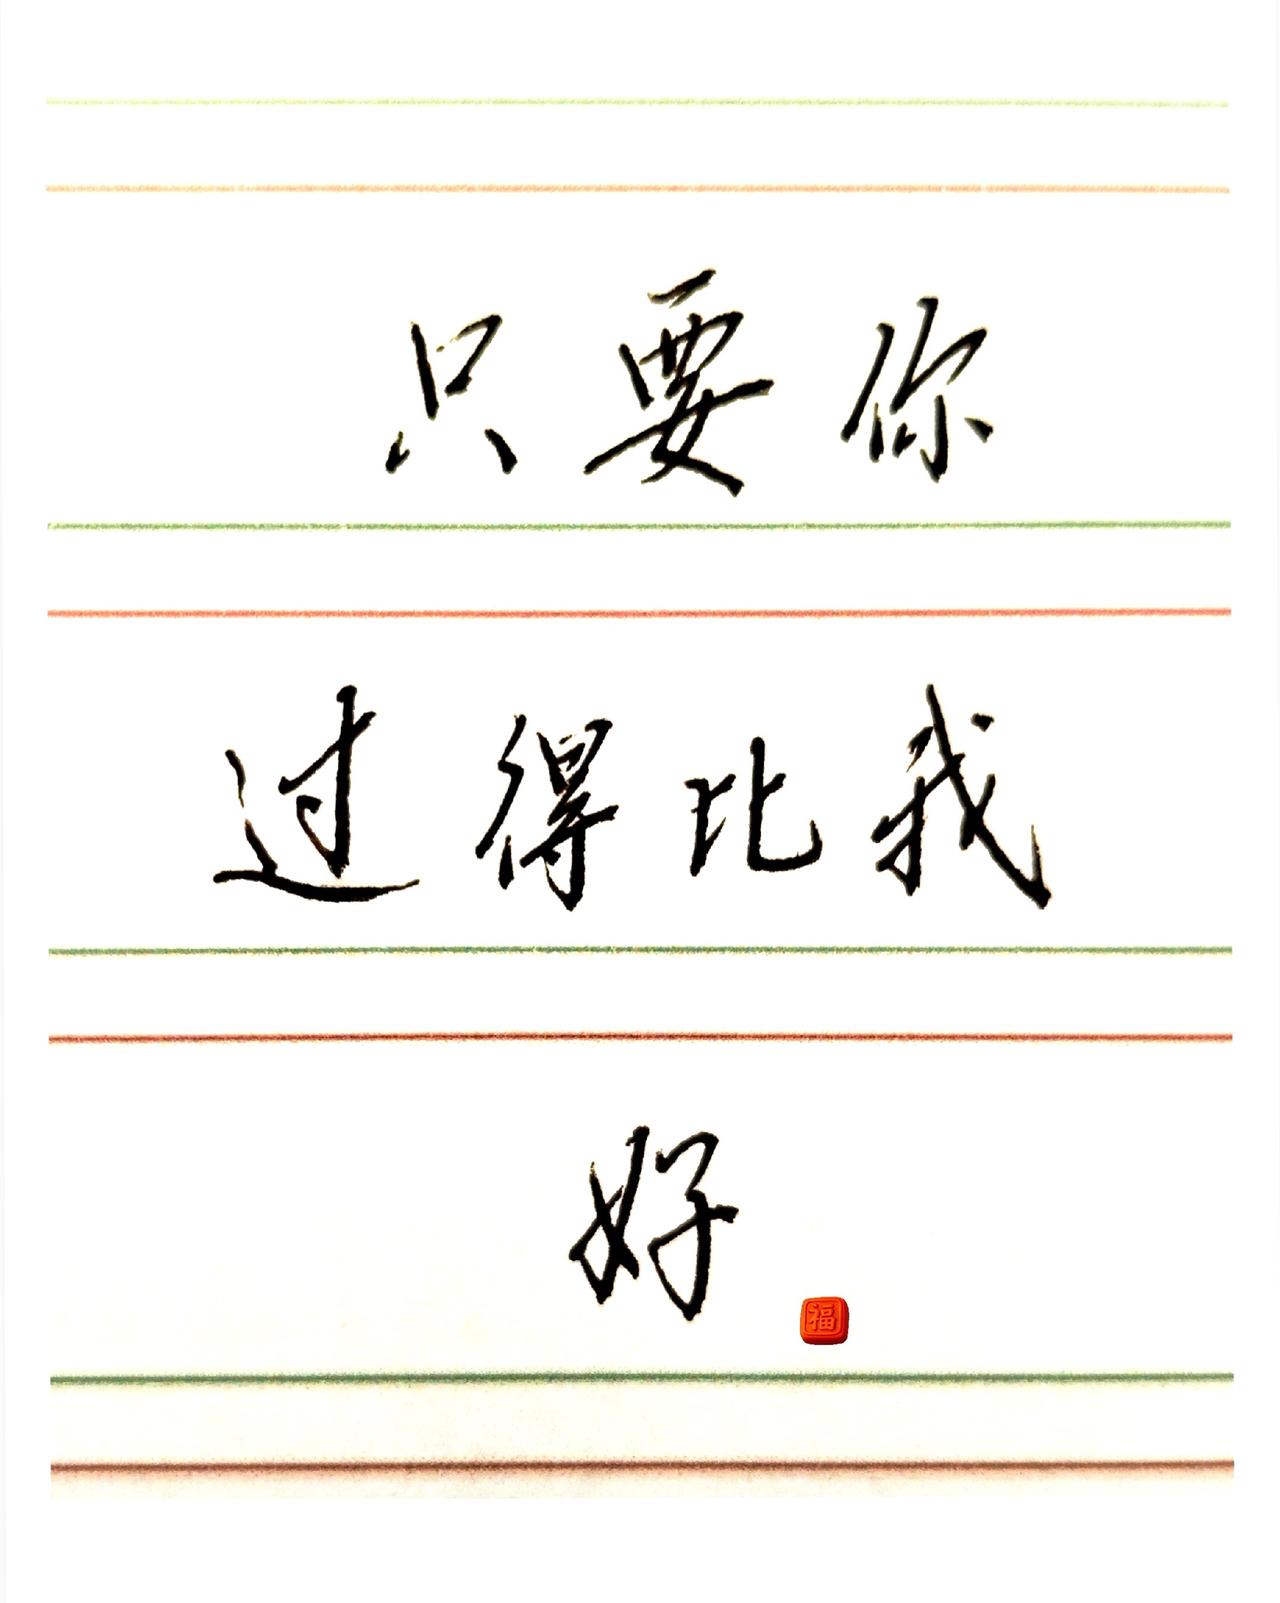 只要你
过得比我
好
福